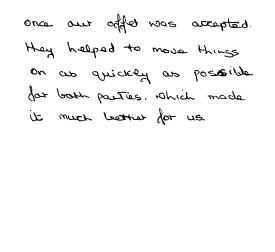 once our offer was accepted.
they helped to move things
on as quickly as possible
for both parties. which made
it much better for us.